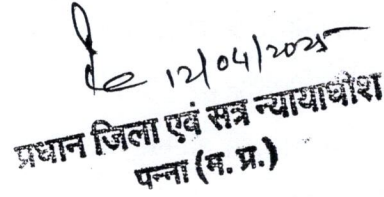 12/04/2025
प्रधान जिला एवं सत्र न्यायाधीश
पन्ना (म. प्र.)